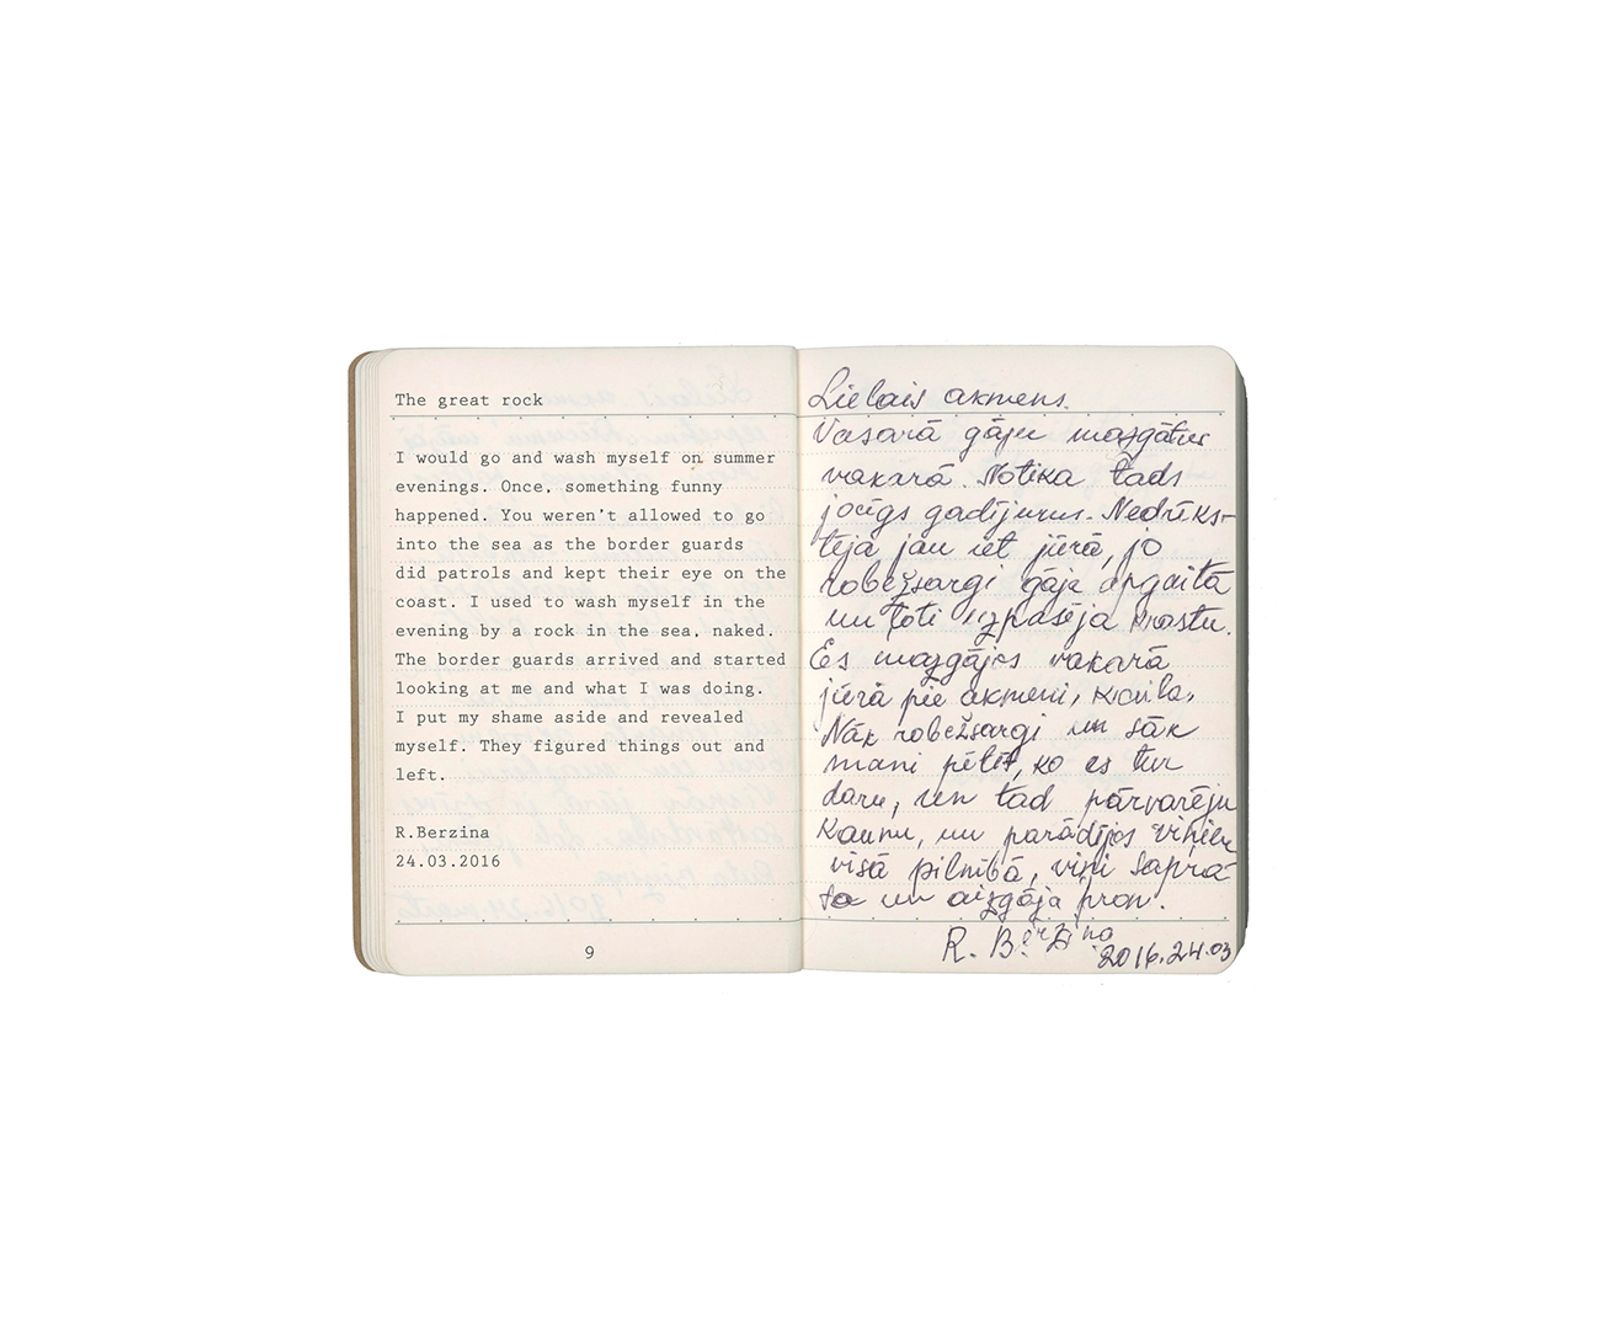 The great rock
I would go and wash myself on summer
evenings. Once, something funny
happened. You weren't allowed to go
into the sea as the border guards
did patrols and kept their eye on the
coast. I used to wash myself in the
evening by a rock in the sea, naked.
The border guards arrived and started
looking at me and what I was doing.
I put my shame aside and revealed
myself. They figured things out and
left.
R.Berzina
24.03.2016
9
Lielais akmens.
Vasarā gāju mazgāties
vakarā. Notika tads
jocīgs gadījums. Nedrīks-
tēja jau iet jūrā, jo
robežsargi gāja apgaitā
un ļoti uzpasēja krastu.
Es mazgājos vakarā
jūrā pie akmeni, kaila.
Nāk robežsargi un sāk
mani pētīt, ko es tur
daru, un tad pārvarēju
kaunu, un parādījos viņiem
visā pilnībā, viņi saprā-
ta un aizgāja prom.
R. Bērziņa
2016.24.03